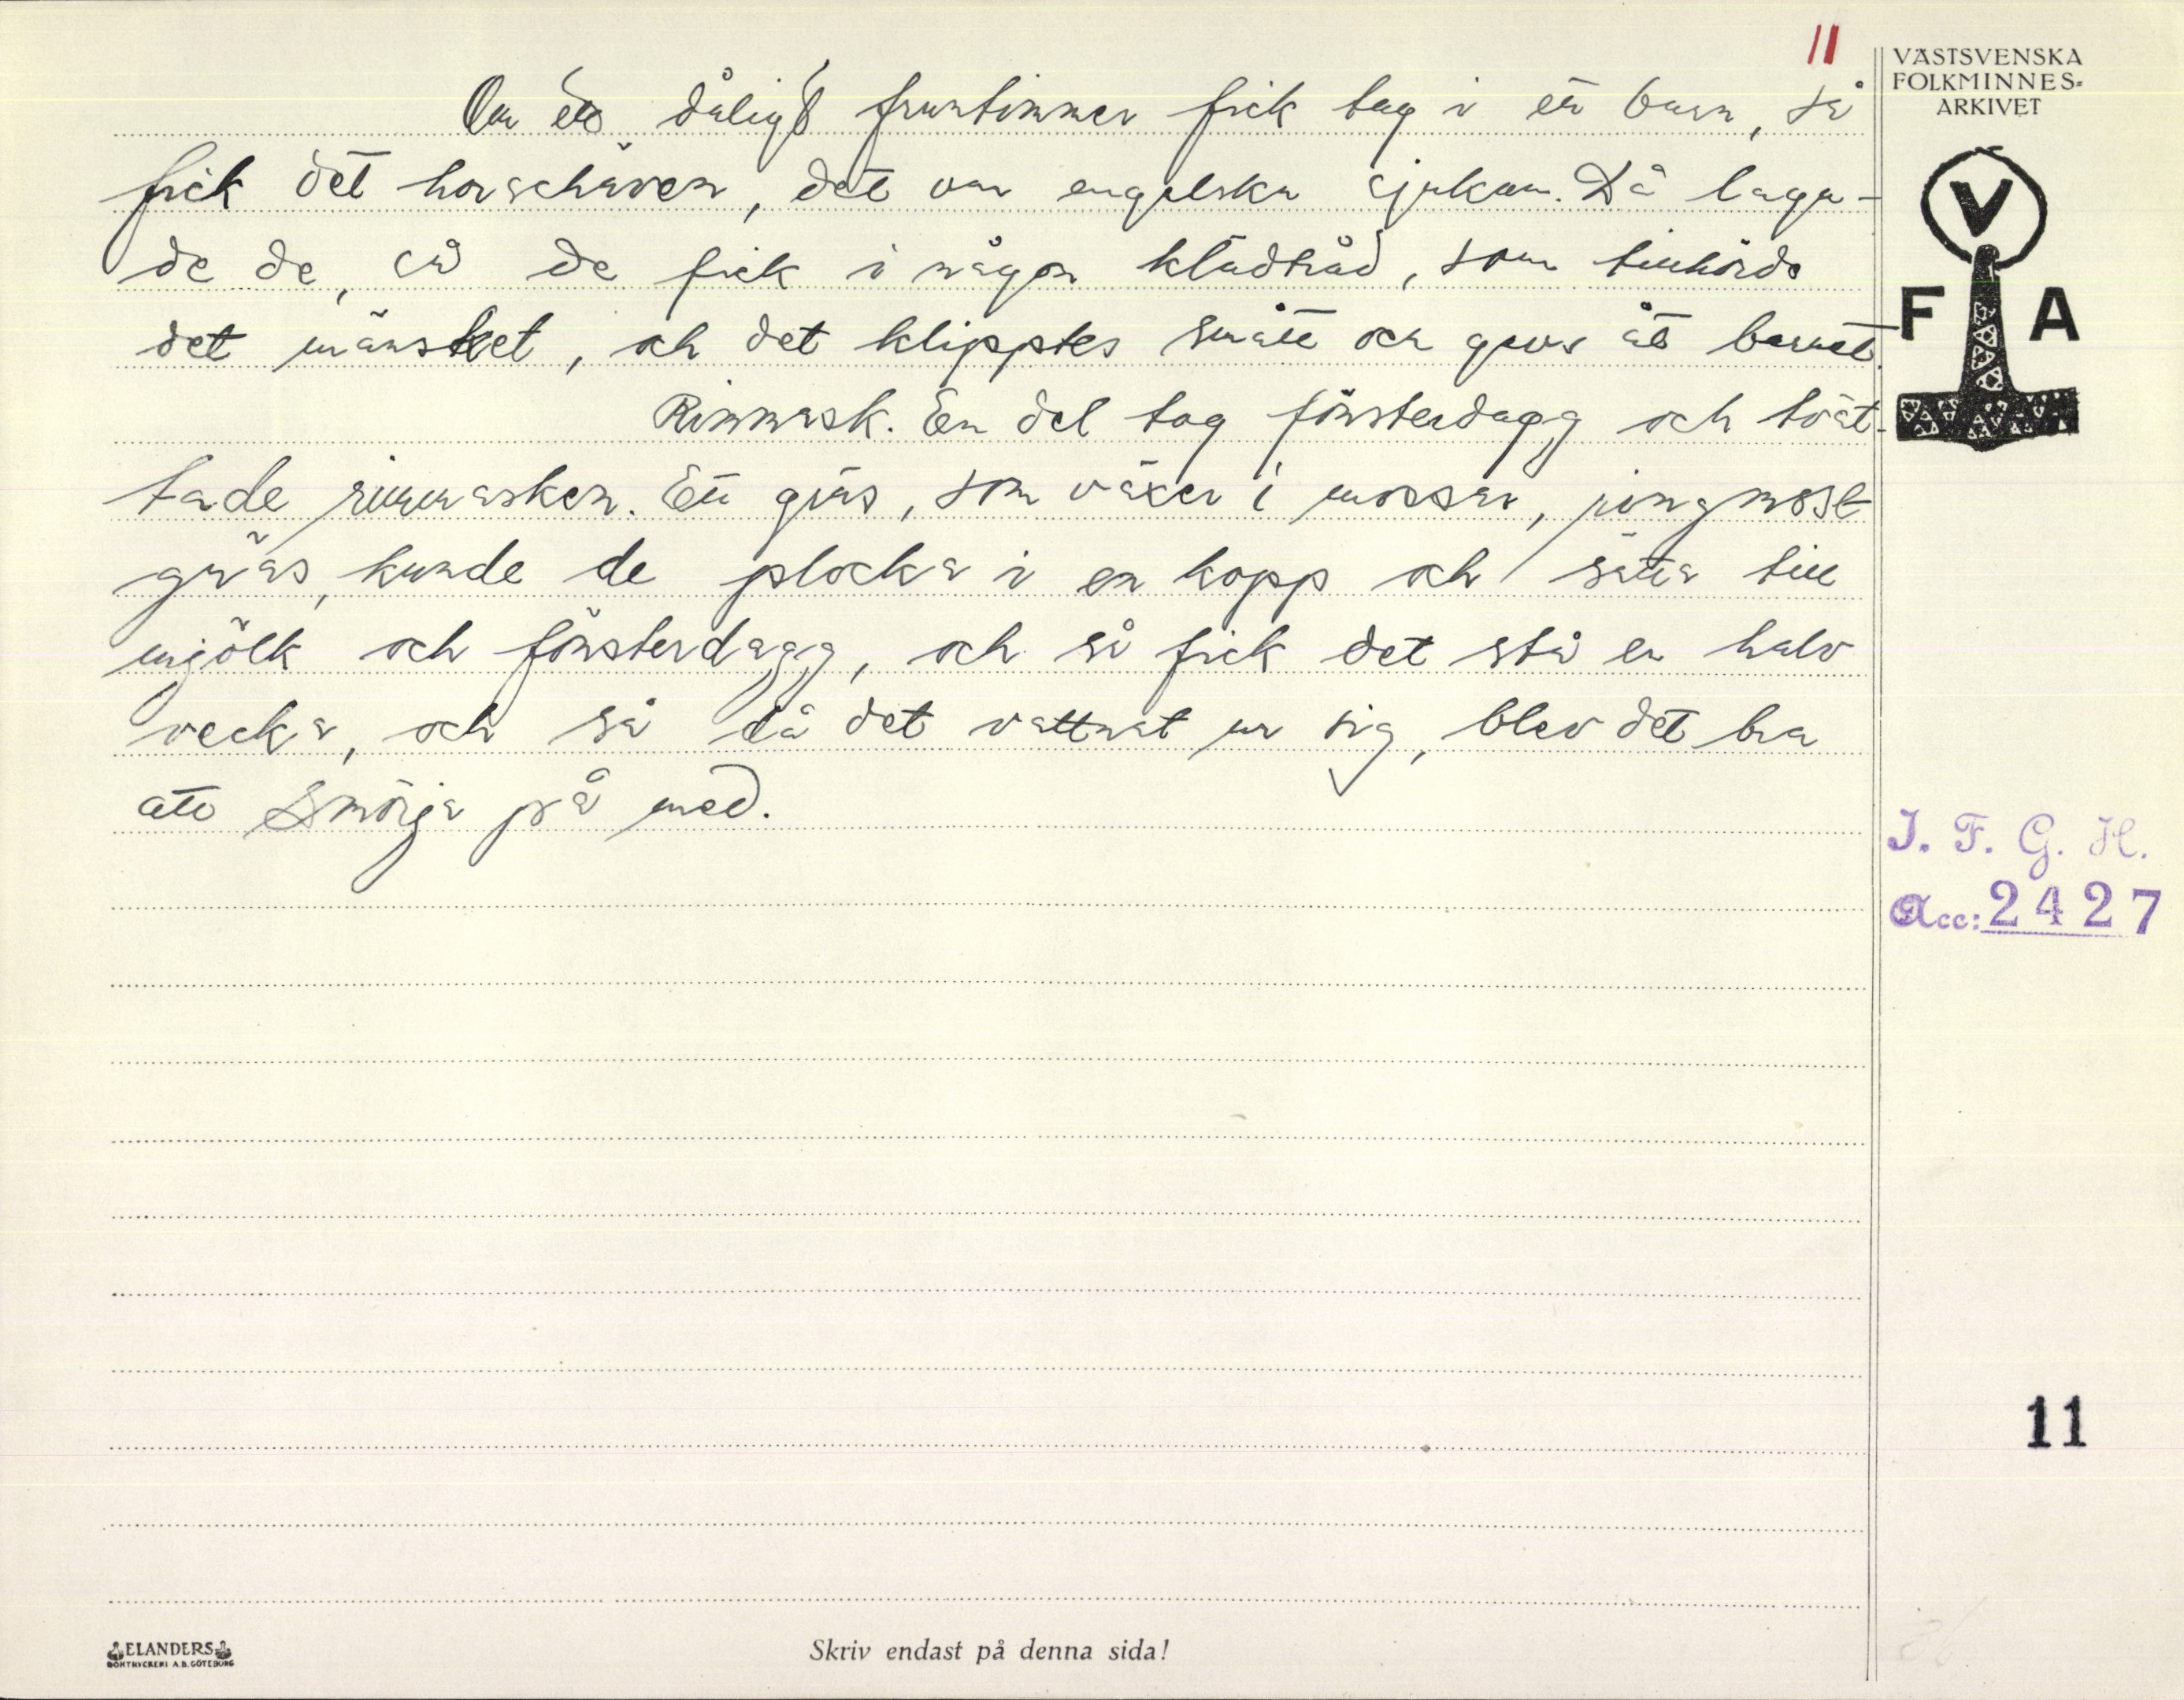 11
VÄSTSVENSKA
FOLKMINNES-
ARKIVET
V
F A
Om ett dåligt fruntimmer fick tag i ett barn, så
fick det horeschäven, det var engelska sjukan. Då laga-
de de, så de fick i någon klädtråd, som tillhörde
det mänsket, och det klipptes smått och gavs åt barnet.
Rinnmask. En del tog fönsterdagg och tvät-
tade rinnmasken. Ett gräs, som växer i mossar, jungmost
gräs, kunde de plocka i en kopp och sätta till
mjölk och fönsterdagg, och så fick det stå en halv
vecka, och så då det vattnat ur sig, blev det bra
att smörja på med.
I. F. G. H.
Acc: 2427
11
ELANDERS
BOKTRYCKERI A.B. GÖTEBORG
Skriv endast på denna sida!